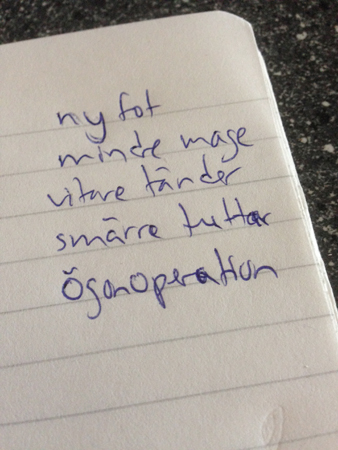 ny fot
mindre mage
vitare tänder
smärre tuttar
ögonoperation